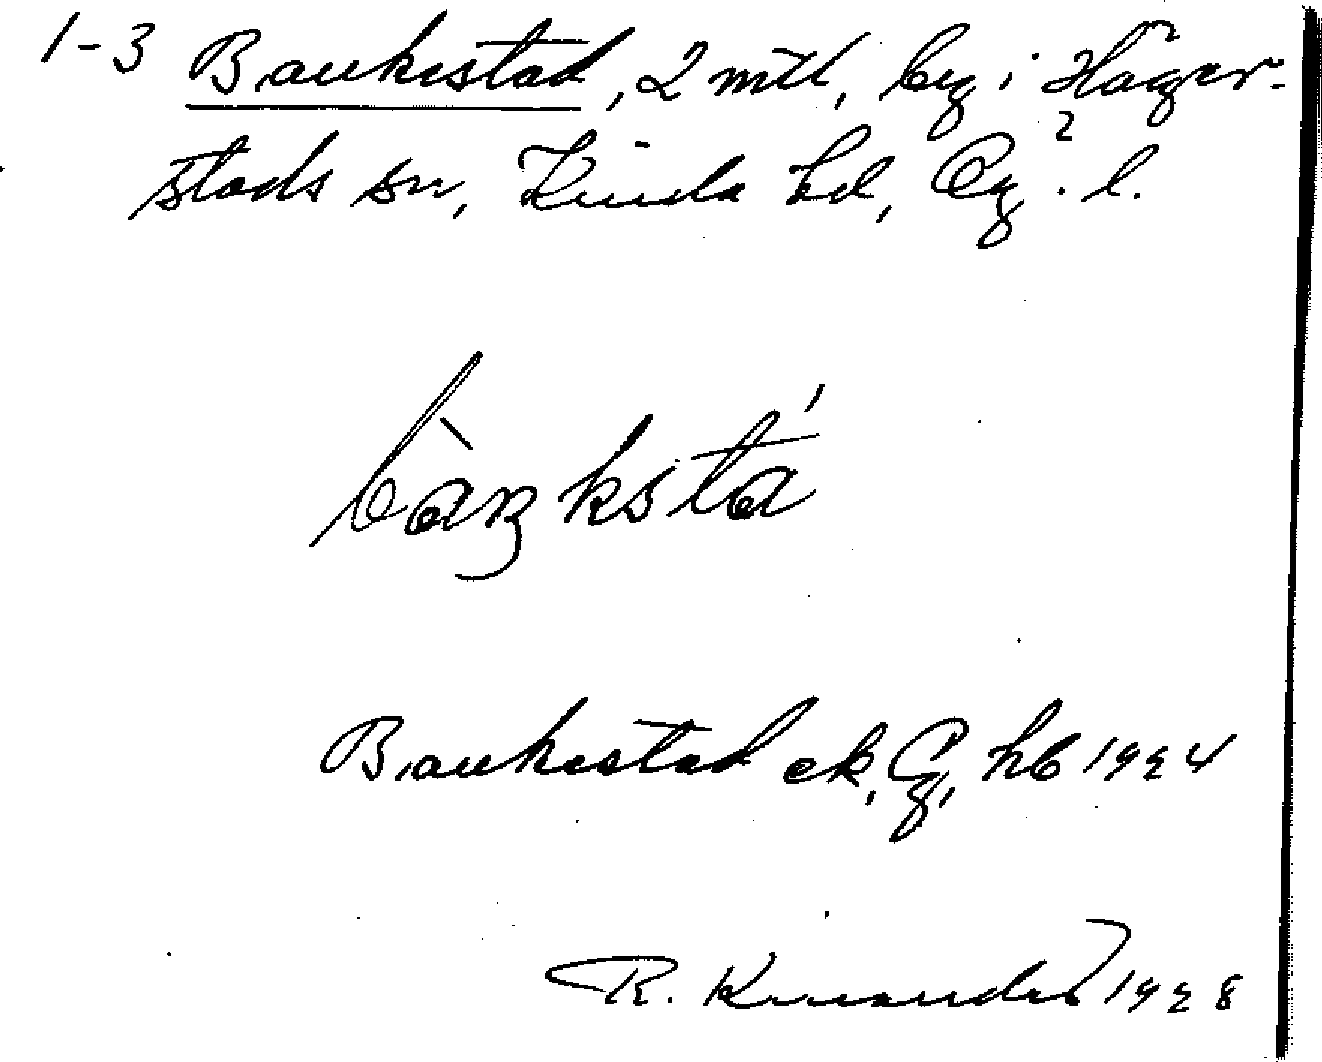 1-3 Bankestad, 2 mtl, by i Häger-
stads sn, Kinda hd, Ög. l.
bàŋkstá
Bankestad ek, Ög, hb 1924
R. 1928